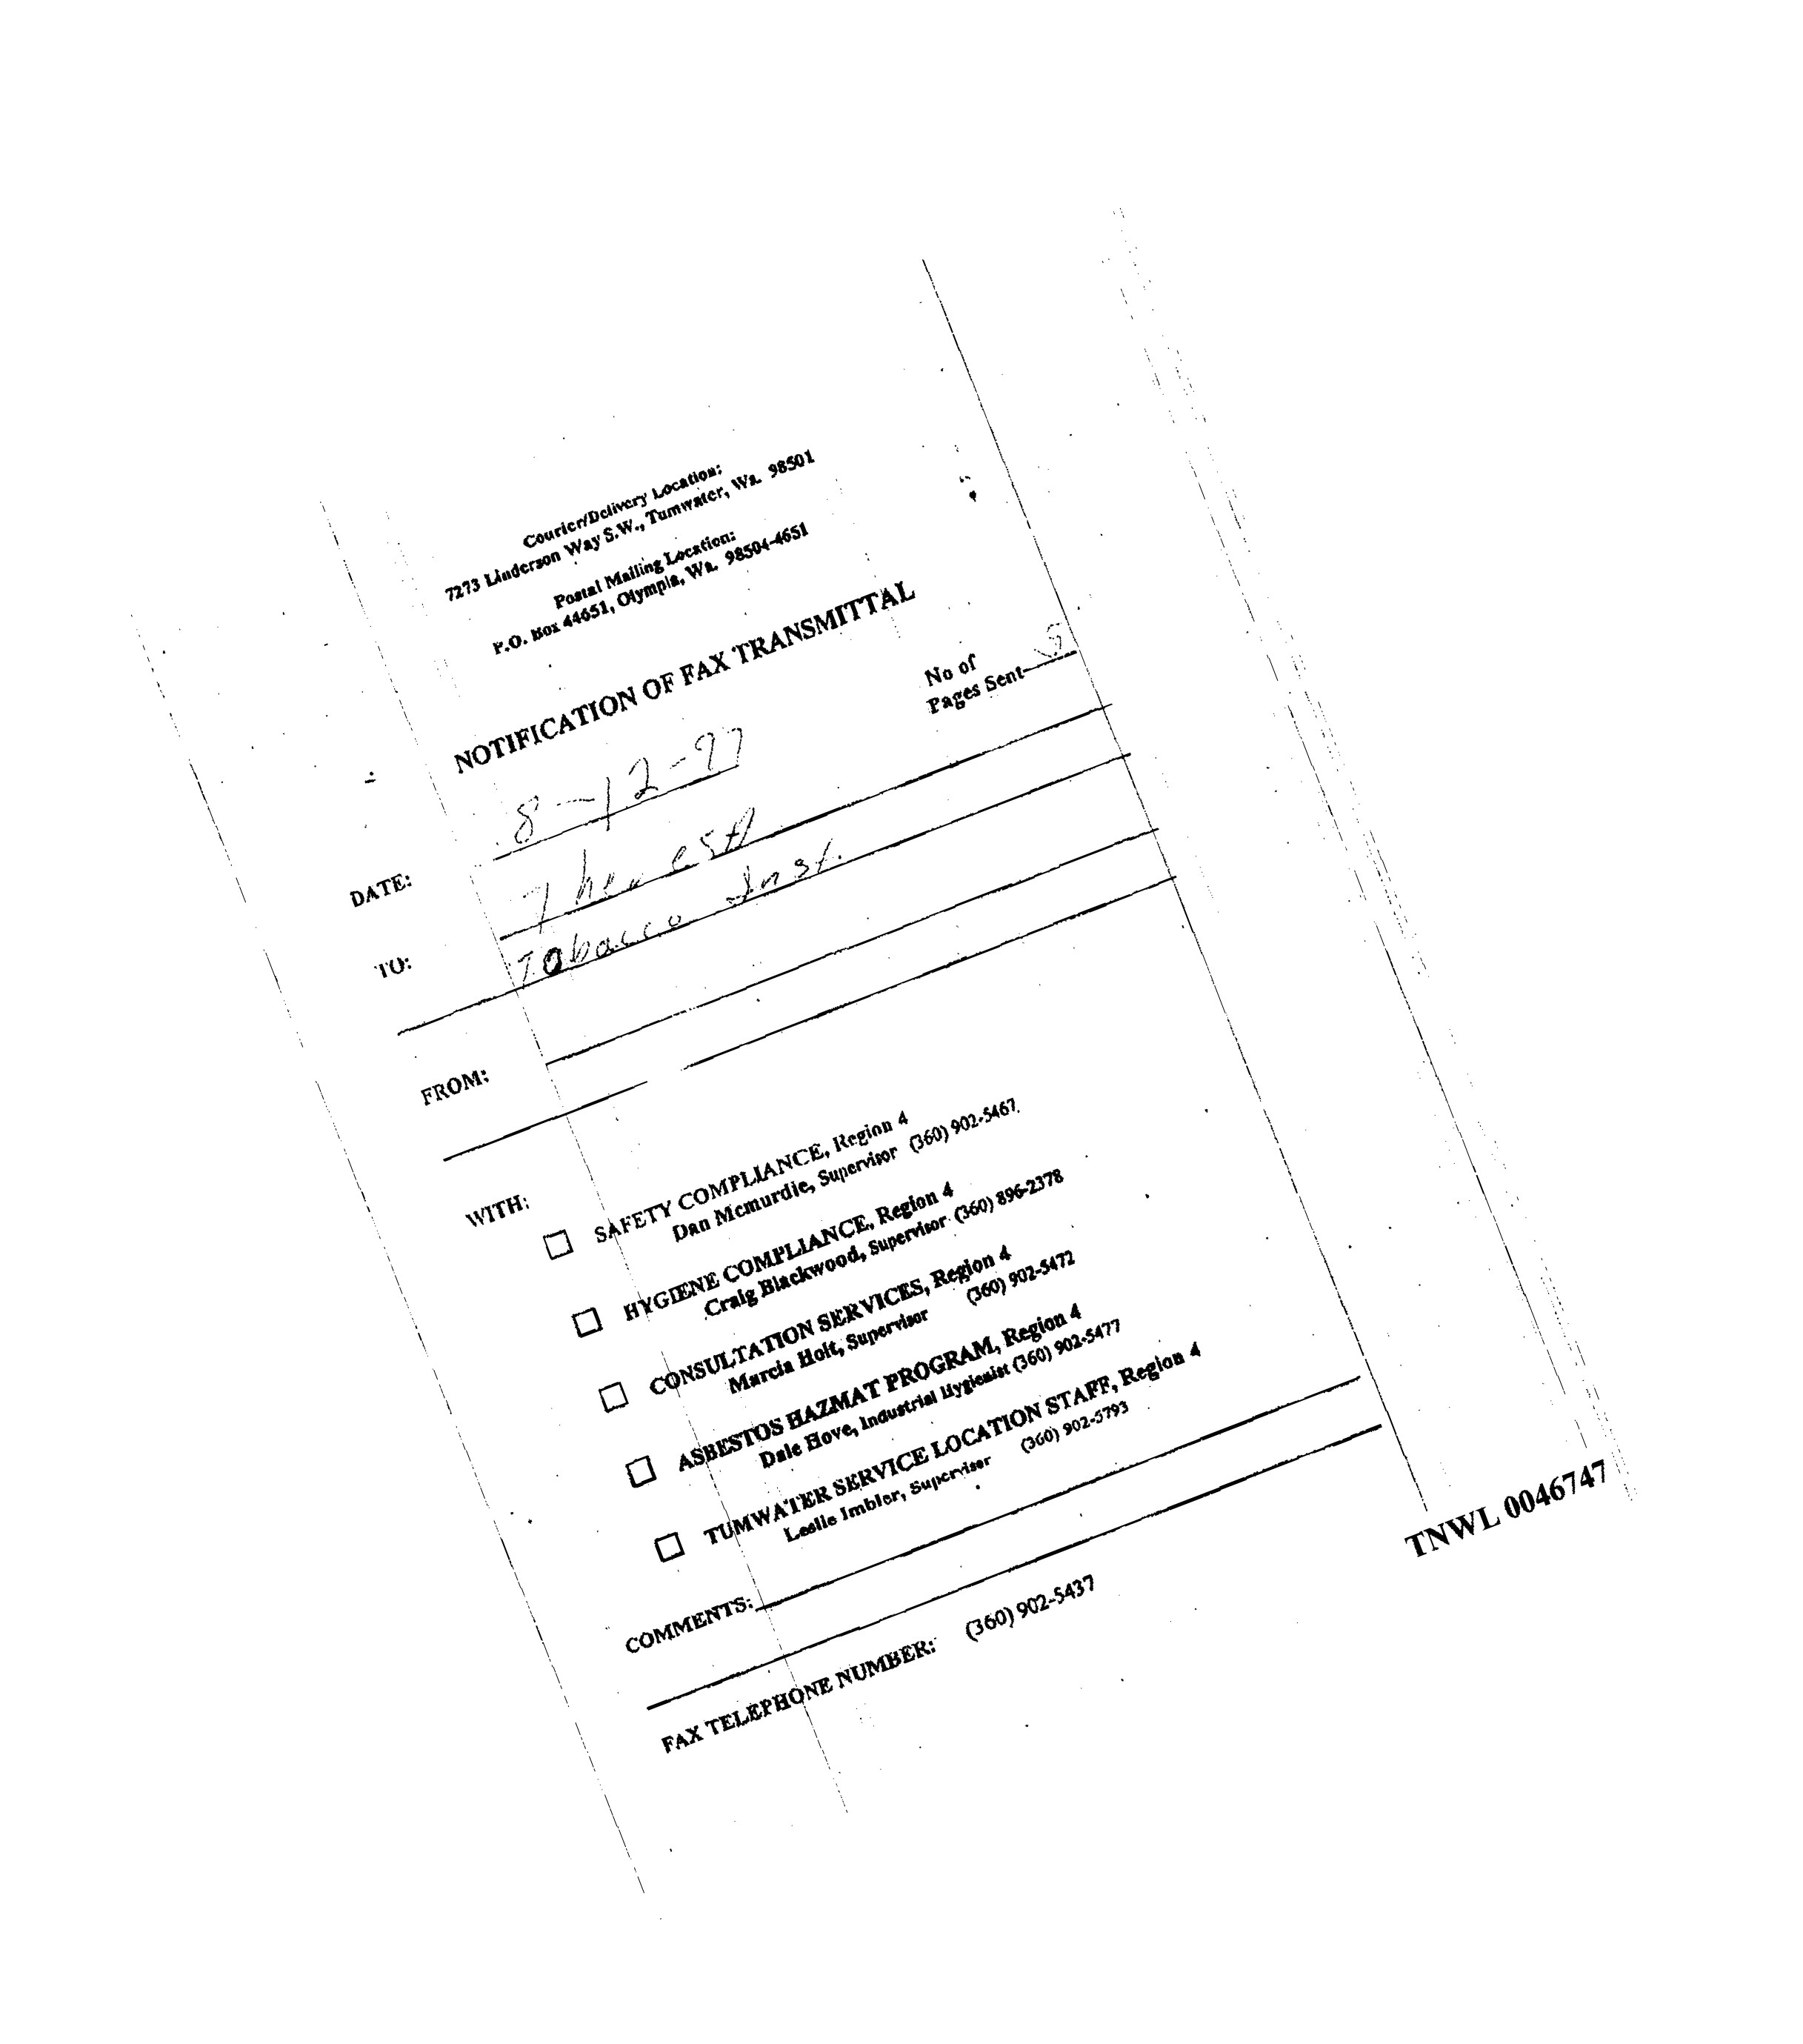 Courier/Delivery Location:
7273 Linderson Way S.W., Tumwater, Wa. 98501
Postal Mailing Location:
P.O. Box 44651, Olympia, Wa. 98504-4651
NOTIFICATION OF FAX TRANSMITTAL
No of
Pages Sent 5
DATE: 8-12-97
TO:
Tobacco Inst.
FROM:
WITH:
SAFETY COMPLIANCE, Region 4
Dan Mcmurdie, Supervisor (360) 902-5467
HYGIENE COMPLIANCE, Region 4
Craig Blackwood, Supervisor (360) 896-2378
CONSULTATION SERVICES, Region 4
Marcia Holt, Supervisor (360) 902-5472
ASBESTOS HAZMAT PROGRAM, Region 4
Dale Hove, Industrial Hygienist (360) 902-5477
TUMWATER SERVICE LOCATION STAFF, Region 4
Leslie Imbler, Supervisor (360) 902-5793
COMMENTS:
FAX TELEPHONE NUMBER: (360) 902-5437
TNWL 0046747